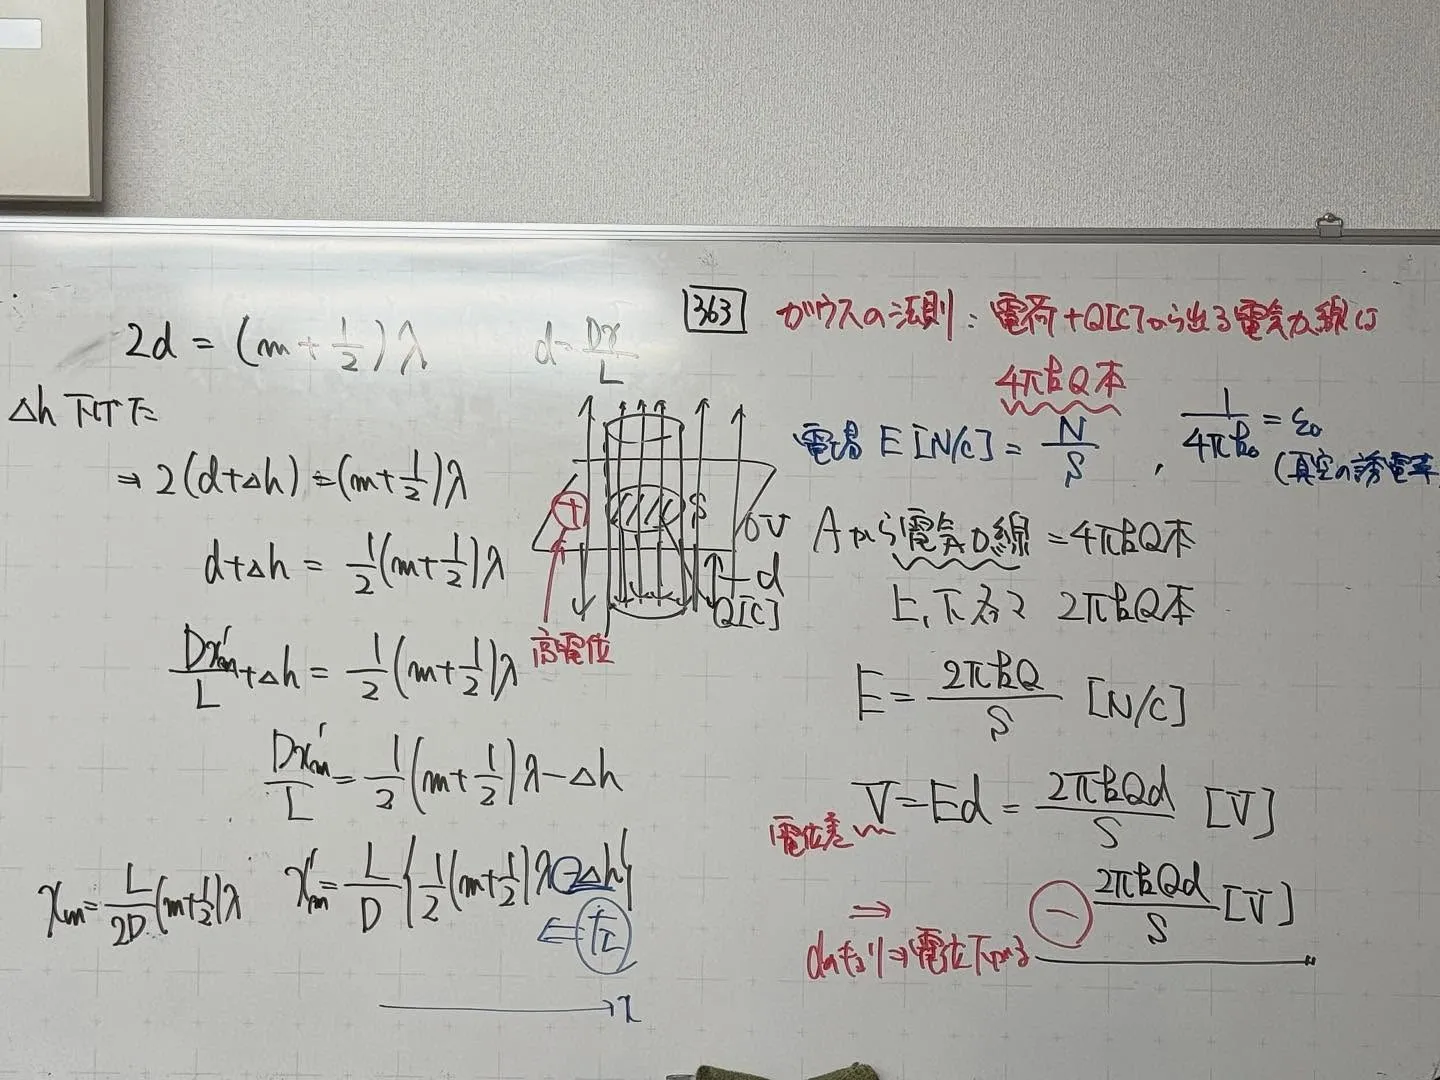 2d = (m + 1/2) λ
d = Dx/L
Δh 下げた
⇒ 2(d+Δh) = (m+1/2)λ
d+Δh = 1/2(m+1/2)λ
Dx'm/L + Δh = 1/2(m+1/2)λ
Dx'm/L = 1/2(m+1/2)λ − Δh
xm = L/2D (m+1/2)λ
x'm = L/D {1/2(m+1/2)λ − Δh}
⇐ 左
x
363
ガウスの法則 : 電荷 +Q[C]から出る電気力線は
4πkQ本
電場 E [N/C] = N/S , 1/4πk₀ = ε₀
(真空の誘電率
+
S
0V
d
Q[C]
高電位
Aから電気力線 = 4πkQ本
上、下各々 2πkQ本
E = 2πkQ/S [N/C]
電位差 V = Ed = 2πkQd/S [V]
⇒
dのきょり→電位下がる
− 2πkQd/S [V]